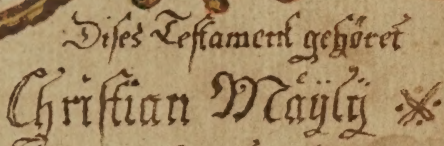 Dises Testament gehöret
Christian Mäÿlÿ